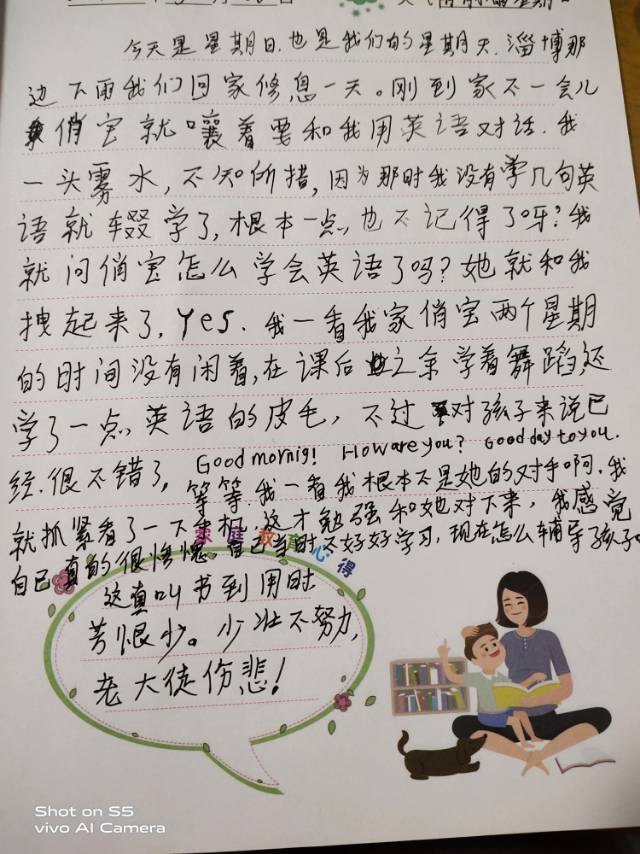 今天是星期日.也是我们的星期天.淄博那
边下雨我们回家修息一天。刚到家不一会儿
俏宝就嚷着要和我用英语对话.我
一头雾水,不知所措,因为那时我没有学几句英
语就辍学了,根本一点,也不记得了呀?我
就问俏宝怎么学会英语了吗?她就和我
拽起来了,Yes.我一看我家俏宝两个星期
的时间没有闲着,在课后之余学着舞蹈,还
学了一点英语的皮毛,不过对孩子来说已
经.很不错了,Good mornig! How are you? Good day to you.
等等.我一看我根本不是她的对手啊.我
就抓紧看了一下手机,这才勉强和她对下来,我感觉
自己真的很惭愧.自己当时不好好学习,现在怎么辅导了孩子
家庭教育心得
这真叫书到用时
苦恨少。少壮不努力,
老大徒伤悲!
Shot on S5
vivo AI Camera